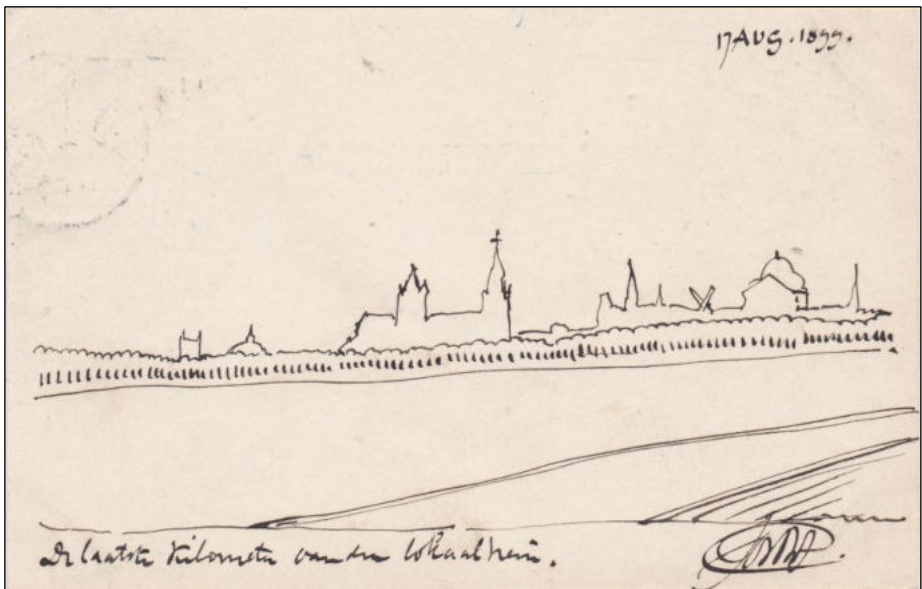 17 AUG. 1899.
De laatste kilometer van den lokaaltrein.